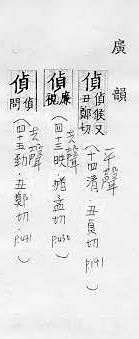 廣韻
偵 偵候又丑鄭切 平聲（十四清．丑貞切 P191
偵 廉視 去聲（四三映．豬孟切 P430
偵 偵問 去聲（四五勁．丑鄭切．P431